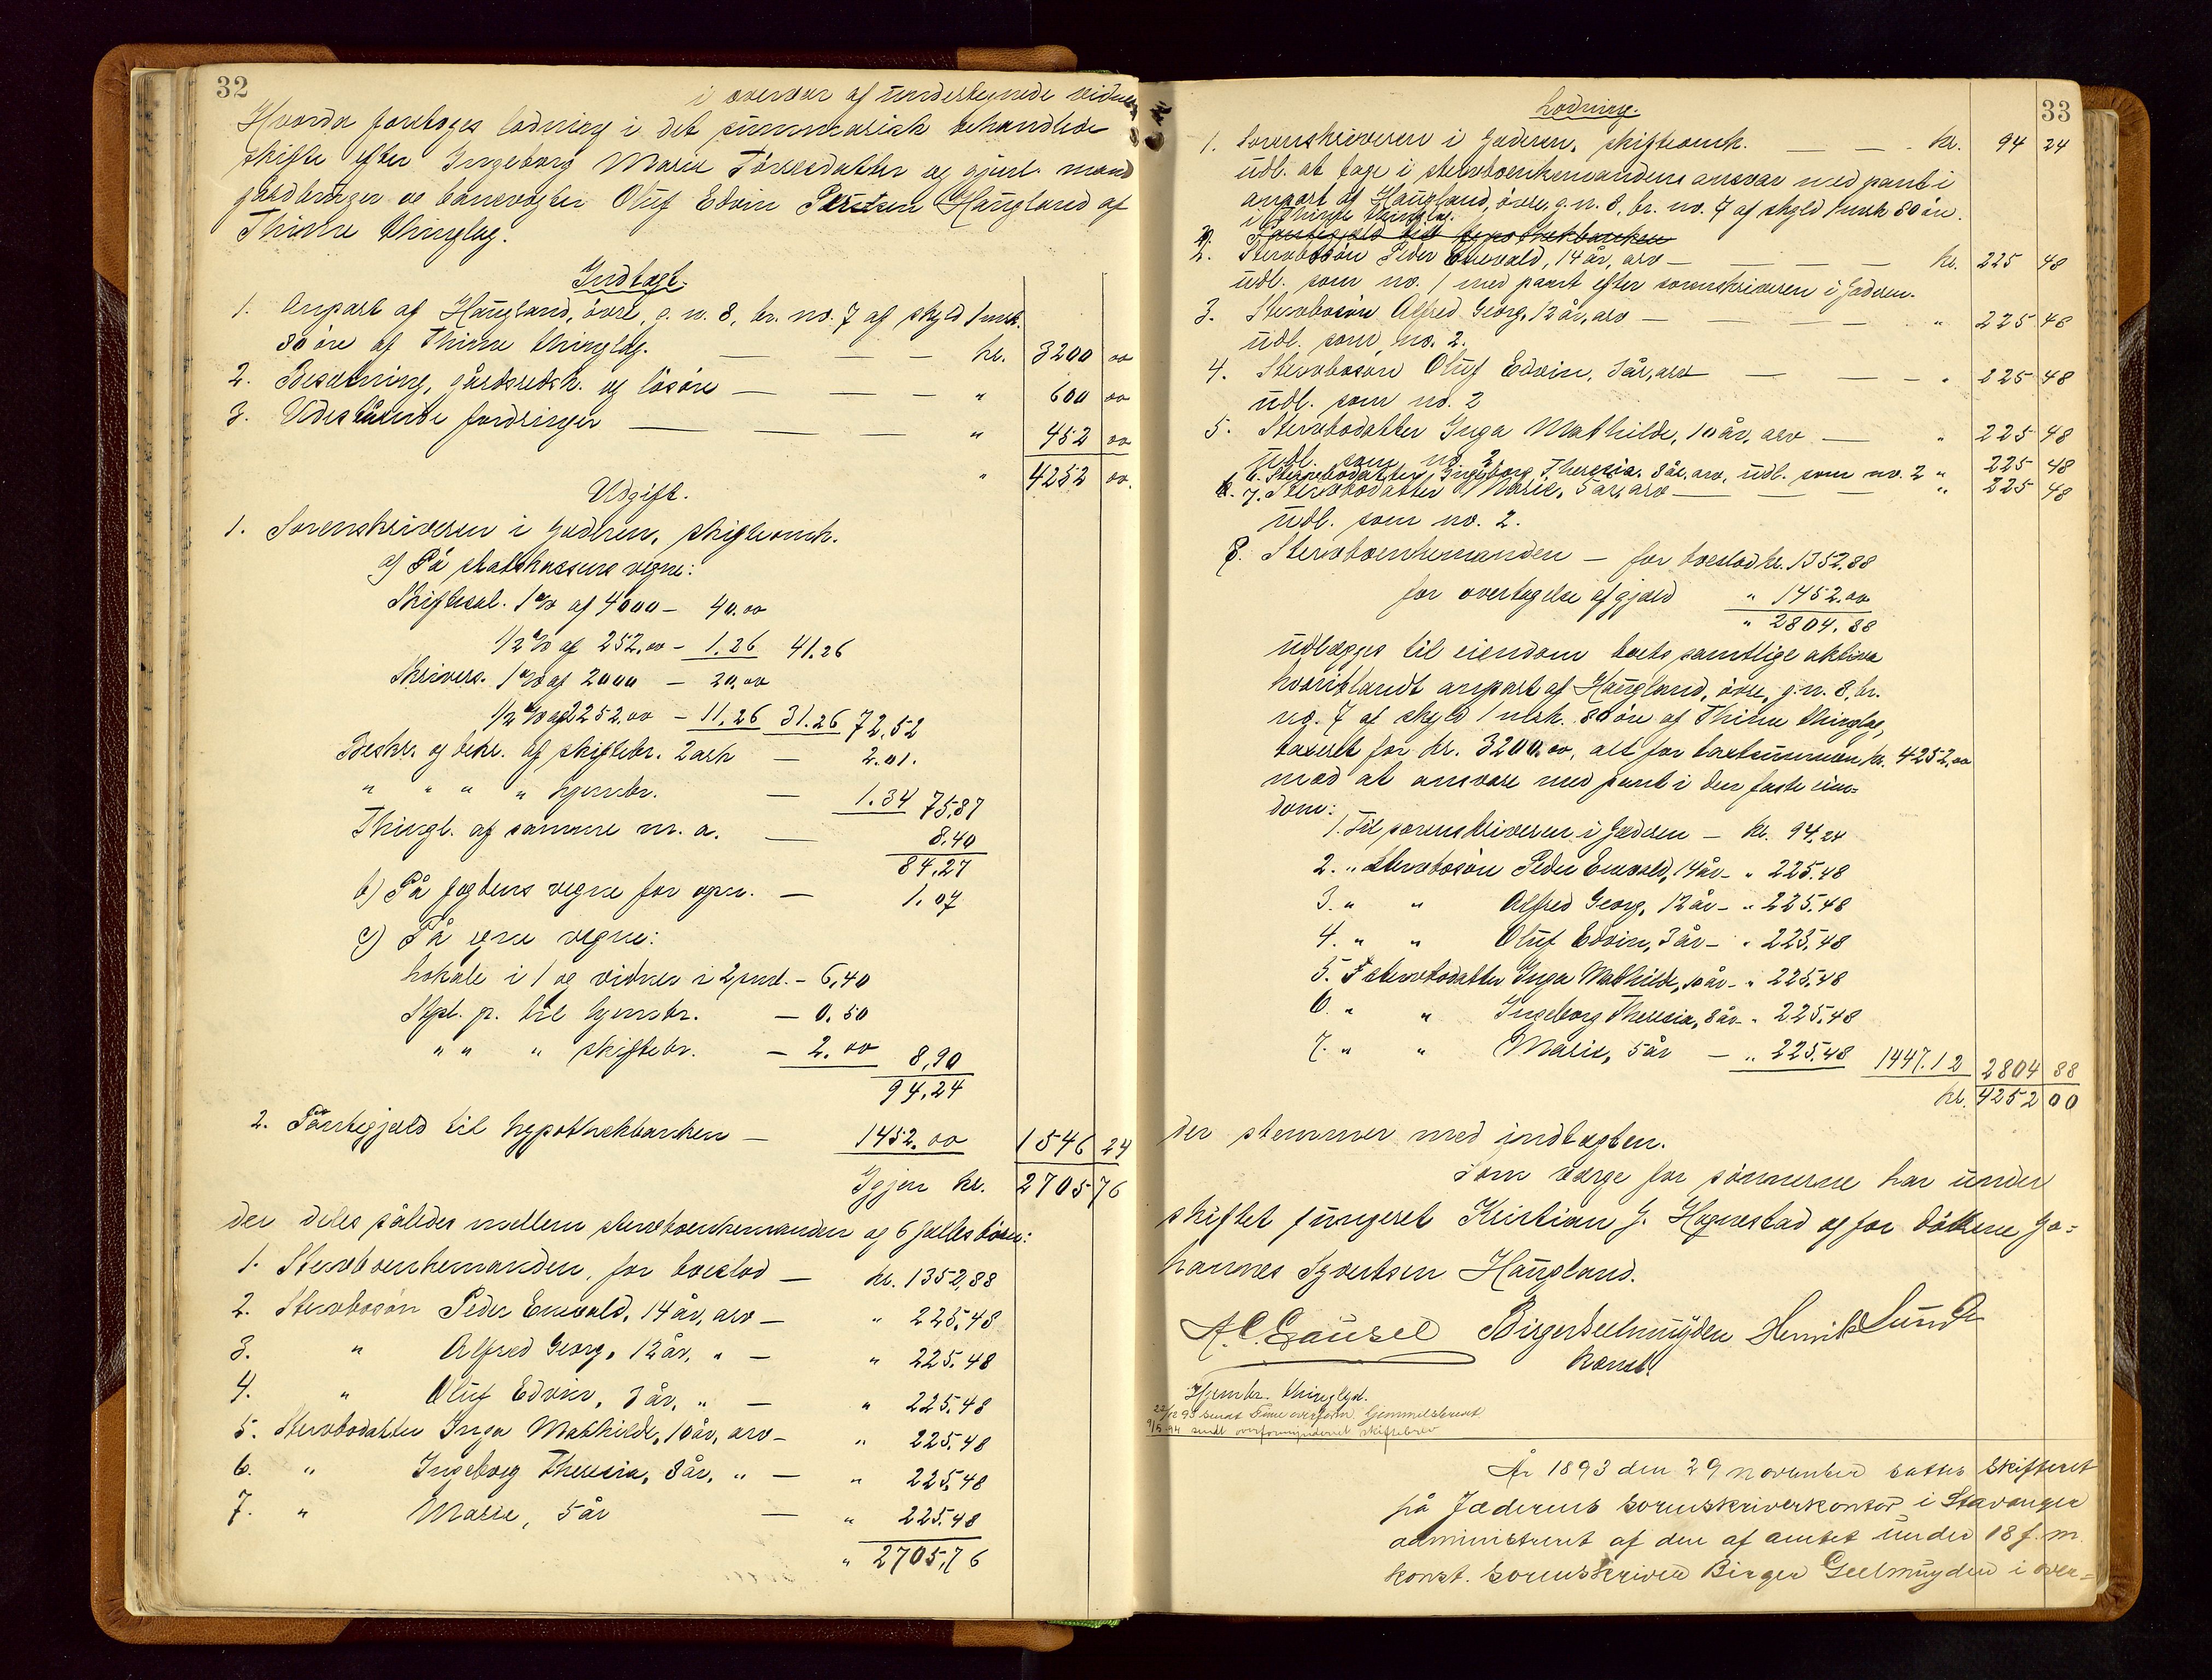 32
i overvær af undertegnede vidner
Hvorda foretoges lodning i det summarisk behandlede
skifte efter Ingeborg Marie Torresdatter og gjenl. mand
gårdbruger og banevogter Oluf Edvin Persen Haugland af
Thime thinglag.
Indtægt.
1. Anpart af Haugland, övre, g. n. 8, br. no. 7 af skyld 1 mrk.
80 öre af Thime thinglag. — — — kr. 3200 00
2. Besætning, gårdsredsk. og lösöre — — — " 600 00
3. Udestående fordringer — — — " 452 00
" 4252 00.
Udgift.
1. Sorenskriveren i Jæderen, skifteomk.
a) På statskassens vegne:
Skiftesal. 1 % af 4000 — 40.00
1/2 % af 252,00 — 1.26 41.26
Skrivers. 1 % af 2000 — 20,00
1/2 % af 2252,00 — 11,26 31.26 72,52
Beskr. og bekr. af skiftebr. 2 ark — 2.01.
" " " " hjembr. — 1.34 75,87
Thingl. af samme m. a. — 8,40
84,27
b) På fogdens vegne for opn. — 1.07
c) På egne vegne:
Lokale i 1 og vidner i 2 md. — 6,40
Stpl. p. til hjembr. — 0.50
" " " skiftebr. — 2.00 8,90
94,24
2. Pantegjæld til hypothekbanken — 1452.00 1546 24
Igjen kr. 2705 76
der deles således mellem stervboenkemanden og 6 fællesbörn:
1. Stervboenkemanden, for boeslod — kr. 1352,88
2. Stervbosön Peder Enevald, 14 år, arv — " 225,48
3. " Alfred Georg, 12 år, " — " 225,48
4. " Oluf Edvin, 3 år, " — " 225,48
5. Stervbodatter Inga Mathilde, 10 år, arv — " 225,48
6. " Ingeborg Theresia, 8 år, " — " 225,48
7. " Marie, 5 år — " 225,48
" 2705,76
33
Lodning.
1. Sorenskriveren i Jæderen, skifteomk. — — kr. 94 24
udl. at tage i stervboenkemandens ansvar med pant i
anpart af Haugland, övre, g. n. 8, br. no. 7 af skyld 1 mrk 80 öre.
i Thime thinglag.
2. Pantegjæld til hypothekbanken
2. Stervbosön Peder Enevald, 14 år, arv — — — kr. 225 48
udl. som no. 1 med pant efter sorenskriveren i Jæderen.
3. Stervbosön Alfred Georg, 12 år, arv — — — " 225 48
udl. som no. 2.
4. Stervbosön Oluf Edvin, 3 år, arv — — — " 225 48
udl. som no. 2
5. Stervbodatter Inga Mathilde, 10 år, arv — " 225 48
udl. som no. 2
6. Stervbodatter Ingeborg Theresia, 8 år, arv, udl. som no. 2 " 225 48
7. Stervbodatter Marie, 5 år, arv — — — " 225 48
udl. som no. 2.
8. Stervboenkemanden — for boeslod kr. 1352.88
for overtagelse af gjæld " 1452.00
" 2804.88
udlægges til eiendom boets samtlige aktiva
hvoriblandt anpart af Haugland, övre, g. n. 8, br.
no. 7 af skyld 1 mrk. 80 öre af Thime thinglag,
taxeret for kr. 3200.00, alt for boetsummen kr. 4252,00
mod at ansvare med pant i den faste eien-
dom:
1. Til sorenskriveren i Jæderen — kr. 94,24
2. " Stervbosön Peder Enevald, 14 år — " 225.48
3. " " Alfred Georg, 12 år — " 225,48
4. " " Oluf Edvin, 3 år — " 225,48
5. " stervbodatter Inga Mathilde, 10 år — " 225,48
6. " " Ingeborg Theresia, 8 år — " 225,48
7. " " Marie, 5 år — " 225.48 1447.12 2804 88
kr. 4252 00
der stemmer med indtægten.
Som værge for sönnerne har under
skiftet fungeret Kristian G. Hognestad og for döttrene Jo-
hannes Syvertsen Haugland.
A. C. Gausel Birger Geelmuyden Henrik Lunde
konst.
Hjembr. thinglyst.
22/12 93 sendt Time overform. Gjenmelskrevet
9/5 94 sendt overformynderiet skiftebrev
År 1893 den 29 november sattes skifteret
på Jæderens sorenskriverkontor i Stavanger
administreret af den af amtet under 18 f. m.
konst. sorenskriver Birger Geelmuyden i over-